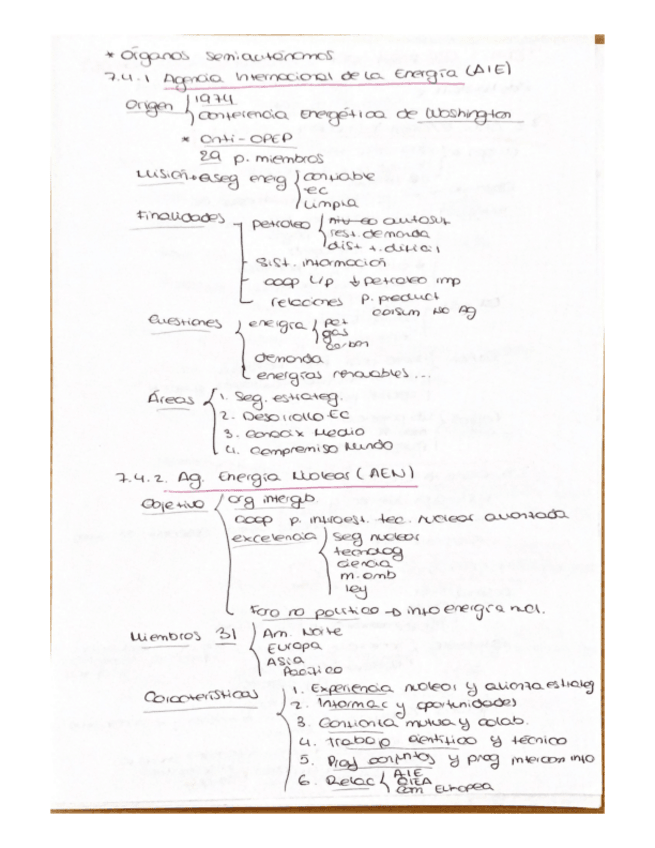 * Órganos semiautónomos
7.4.1 Agencia Internacional de la Energía (AIE)
Origen 1974
conferencia Energética de Washington
* anti-OPEP
29 p. miembros
Misión → aseg energ confiable
ec
limpia
Finalidades petróleo niv eo autosuf
rest. demanda
dist
sist. información
coop L/p ↓ petroleo imp
relaciones p. product
consum NO Ag
Cuestiones energía pet
gas
carbon
demanda
energías renovables...
Áreas 1. Seg. estrateg.
2. Desarrollo EC
3. Conocix Medio
4. Compromiso Mundo
7.4.2. Ag. Energía Nuclear (AEN)
Objetivo org intergb.
coop p. introest. tec. nuclear avanzada
excelencia seg nuclear
tecnolog
ciencia
m. amb
ley
Foro no político → info energía ncl.
Miembros 31 Am. Norte
Europa
Asia
Pacífico
Características 1. Experiencia nuclear y alianza estrateg
2. Informac y oportunidades
3. Confianza mutua y colab.
4. Trabajo científico y técnico
5. Proy conjuntos y prog intercam info
6. Relac AIE
OIEA
com Europea